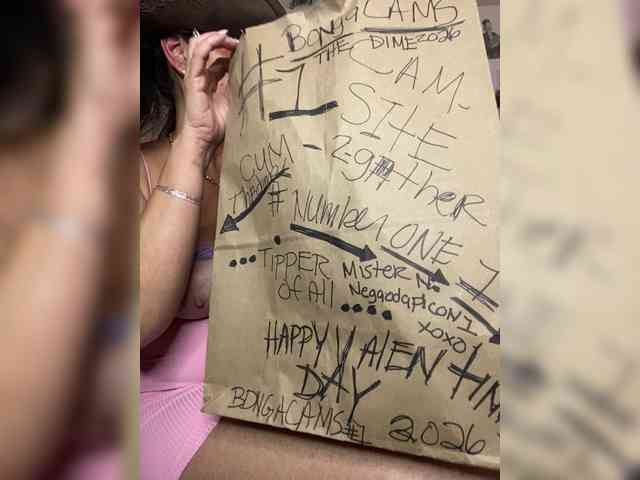 BONgACAMS
THE DIME2026
#1 CAM-
SITE
CUM - 2-gether
# Number ONE 1
....TIPPER Mister N.
OF All ....
XOXO!
HAPPY VALENTIN
DAY
BONGACAMS#1 2026